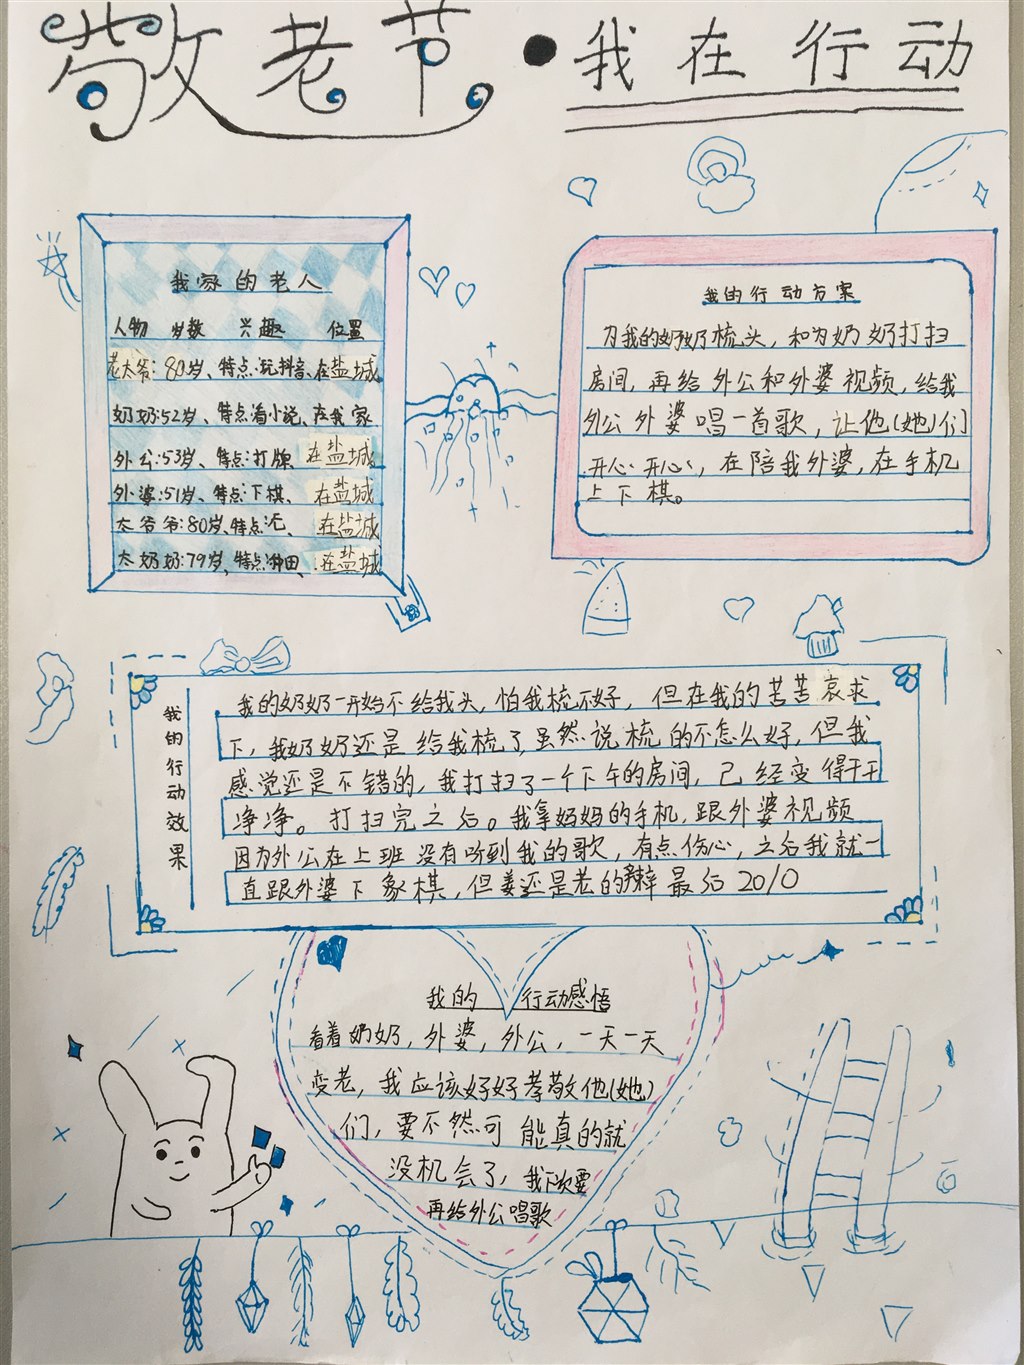 敬老节·我在行动
我家的老人
人物 岁数 兴趣 位置
老太爷:80岁、特点:玩抖音、在盐城
奶奶:52岁、特点看小说、在我家
外公:53岁、特点:打牌、在盐城
外婆:51岁、特点:下棋、在盐城
太爷爷:80岁、特点:无、在盐城
太奶奶:79岁、特点:种田、在盐城
我的行动方案
为我的奶奶梳头,和为奶奶打扫
房间,再给外公和外婆视频,给我
外公外婆唱一首歌,让他(她)们
开心开心,在陪我外婆,在手机
上下棋。
我的行动效果
我的奶奶一开始不给我头,怕我梳不好,但在我的苦苦哀求
下,我奶奶还是给我梳了,虽然说梳的不怎么好,但我
感觉还是不错的,我打扫了一个下午的房间,己经变得干干
净净。打扫完之后。我拿妈妈的手机,跟外婆视频
因为外公在上班没有听到我的歌,有点伤心,之后我就一
直跟外婆下象棋,但姜还是老的辣最后20/0
我的行动感悟
看着奶奶,外婆,外公,一天一天
变老,我应该好好孝敬他(她)
们,要不然可能真的就
没机会了,我下次要
再给外公唱歌